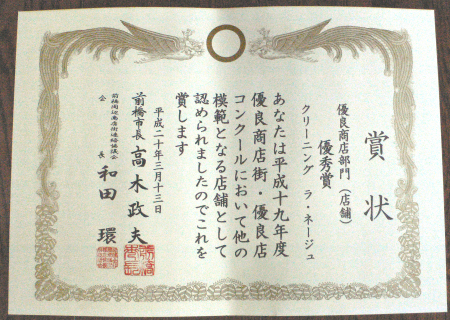 賞状
優良商店部門(店舗)
優秀賞
クリーニング ラ・ネージュ
あなたは平成十九年度
優良商店街・優良店
コンクールにおいて他の
模範となる店舗として
認められましたのでこれを
賞します
平成二十年三月十三日
前橋市長 高木政夫
前橋周辺商店街連絡協議会
会長 和田 環